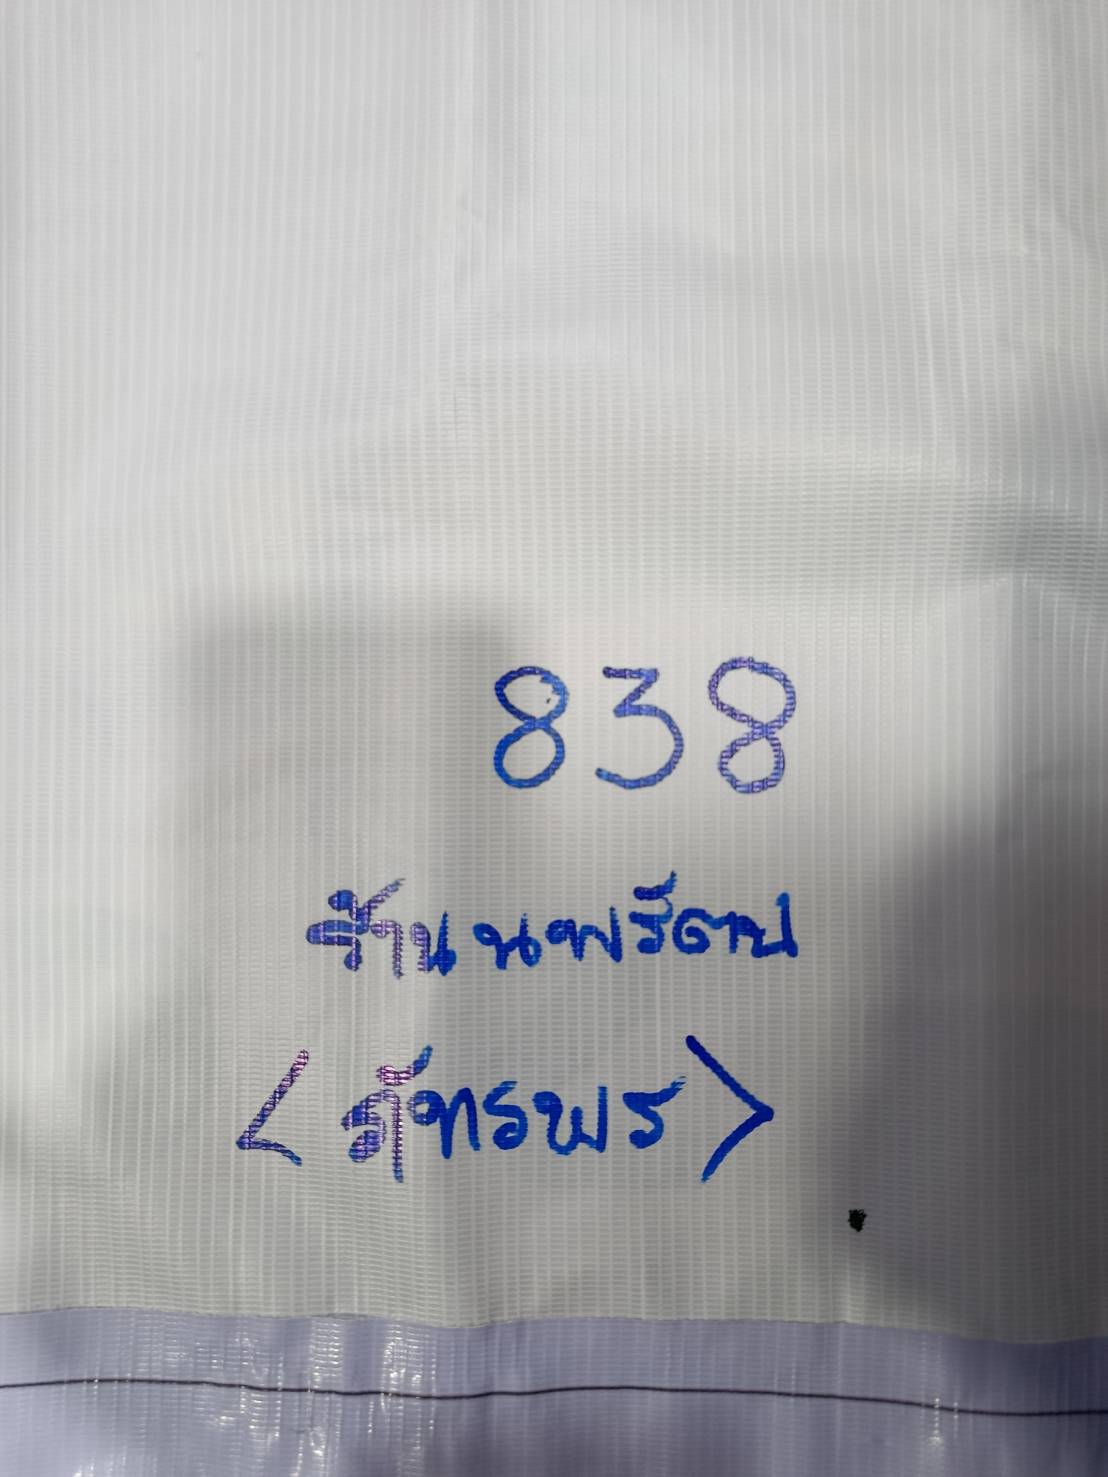 838
ร้าน นพรัตน์
<ภัทรพร>